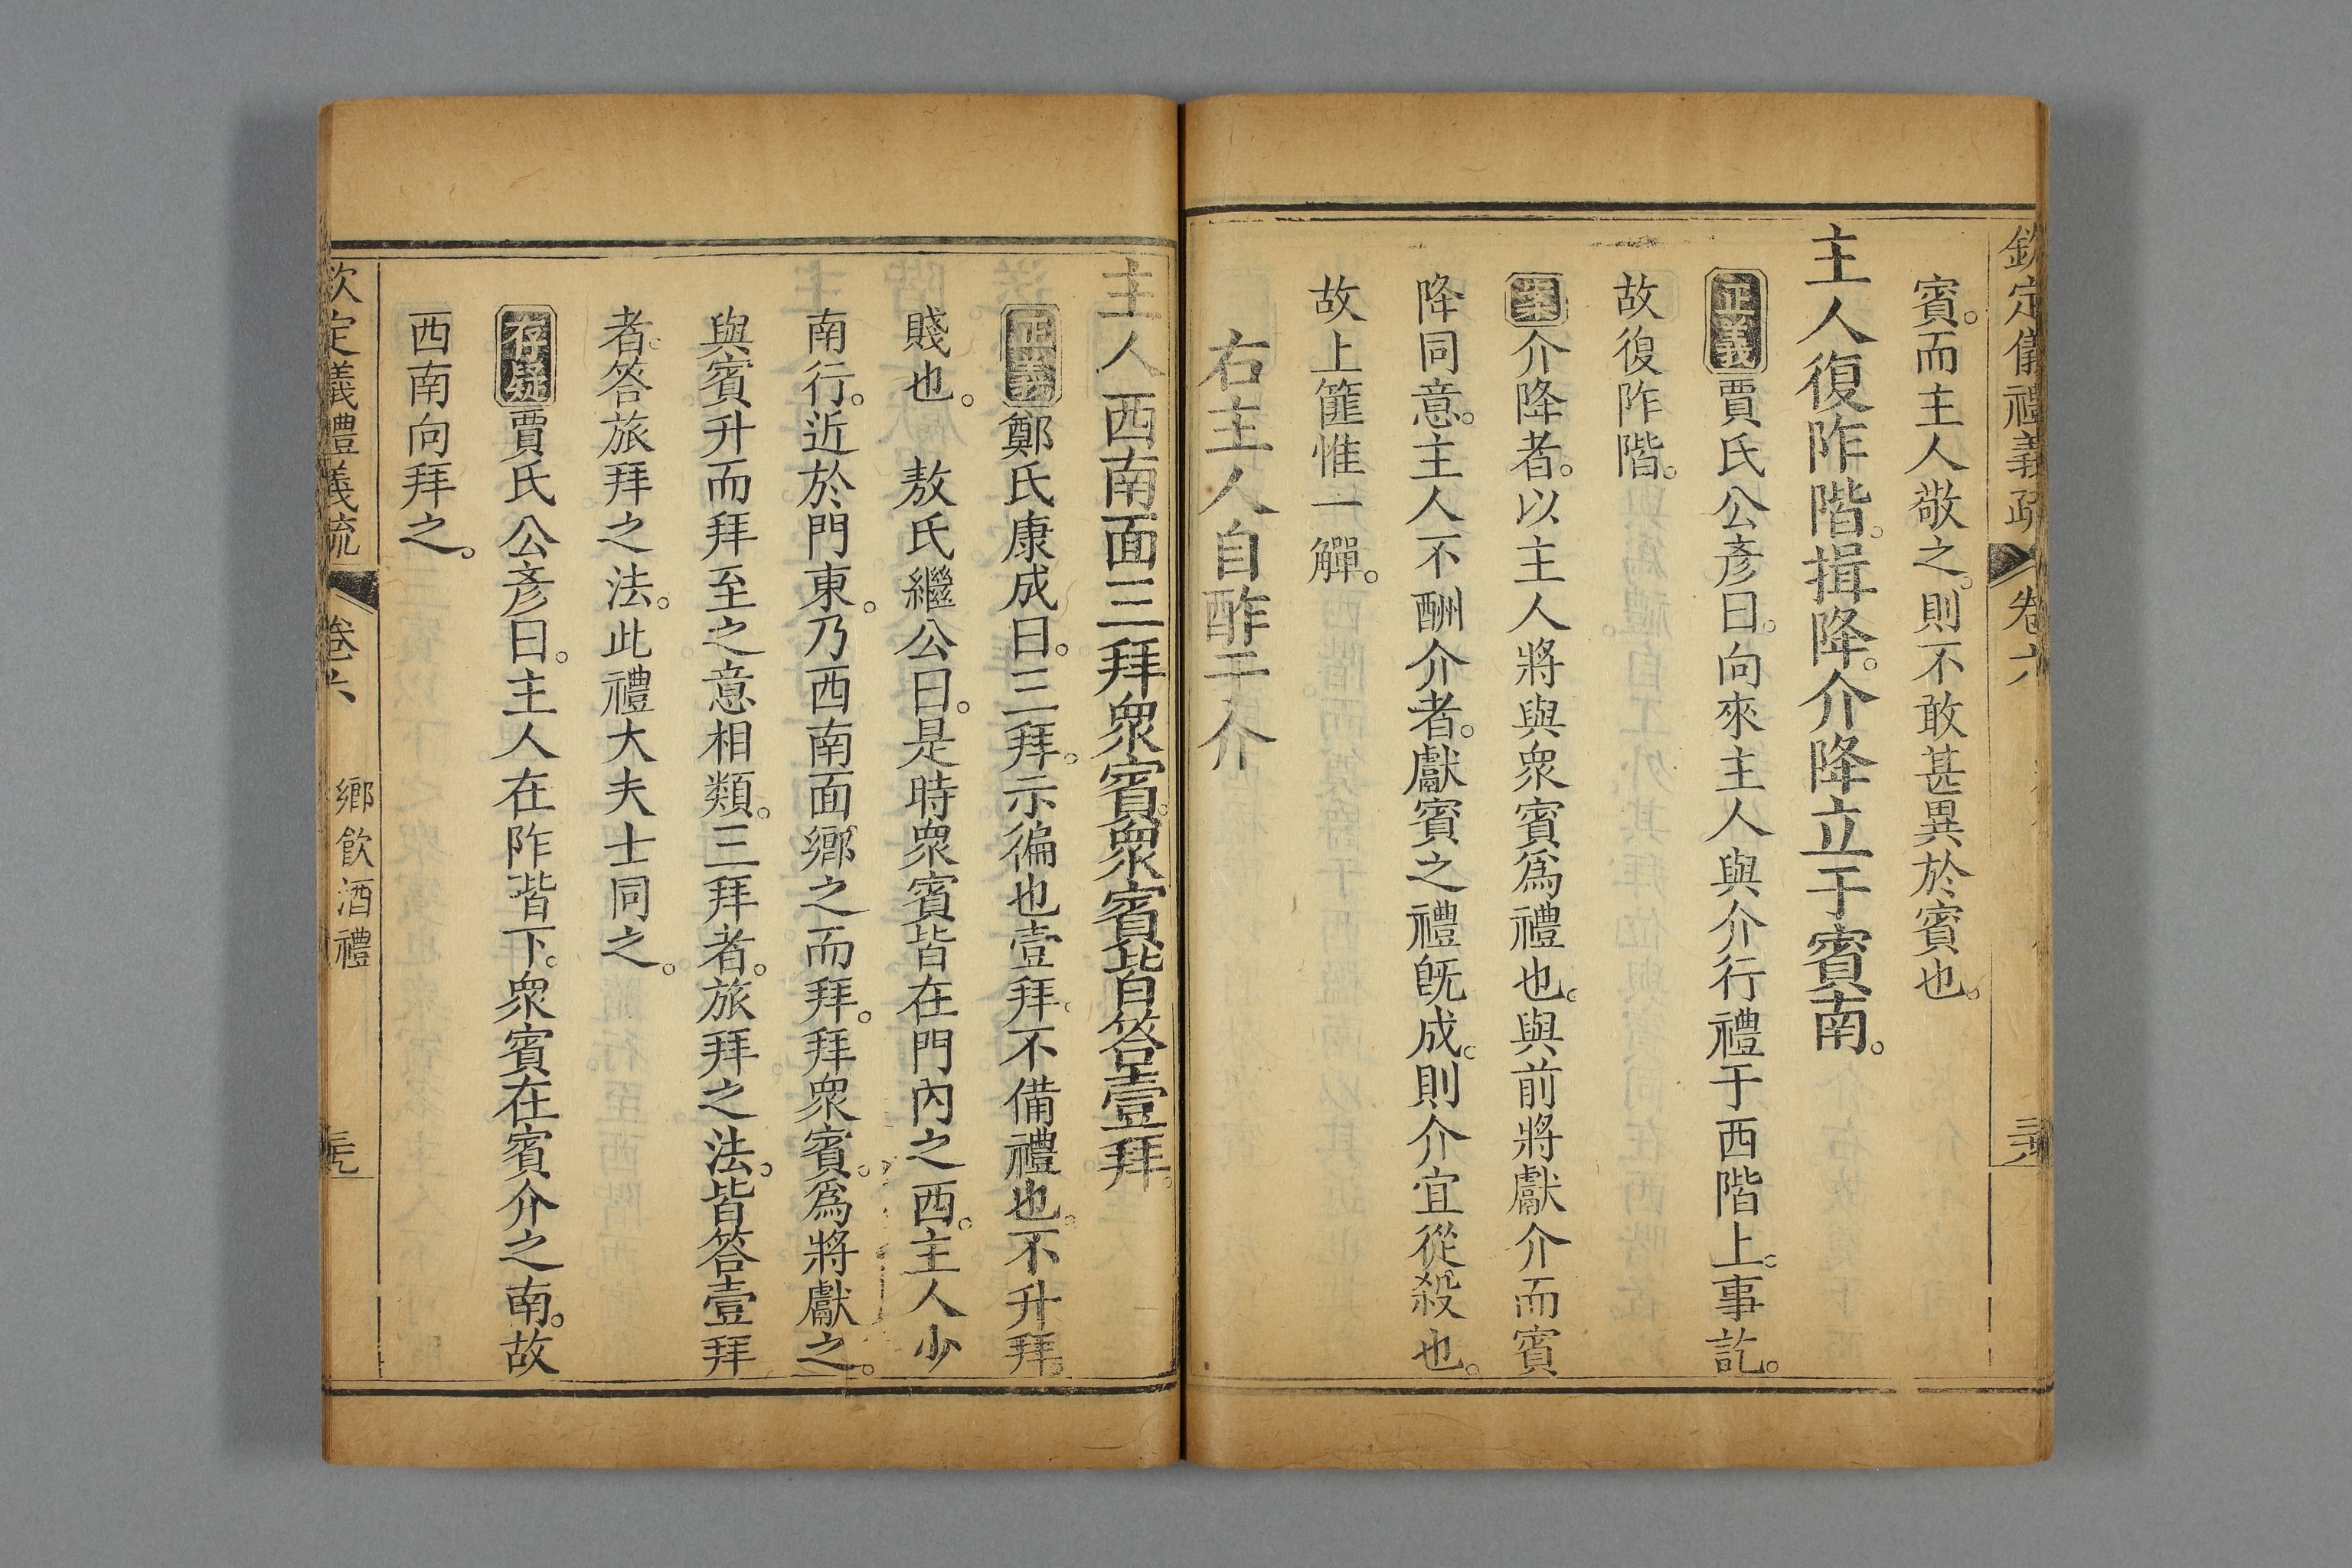 欽定儀禮義疏 卷六
賓。而主人敬之。則不敢甚異於賓也。
主人復阼階。揖降。介降立于賓南。
正義賈氏公彥曰。向來主人與介行禮于西階上。事訖。
故復阼階。
案介降者。以主人將與衆賓爲禮也。與前將獻介而賓
降同意。主人不酬介者。獻賓之禮旣成。則介宜從殺也。
故上篚惟一觶。
右主人自酢于介
主人西南面三拜衆賓。衆賓皆答壹拜。
正義鄭氏康成曰。三拜。示徧也。壹拜。不備禮也。不升拜。
賤也。 敖氏繼公曰。是時衆賓皆在門內之西。主人少
南行。近於門東。乃西南面鄉之而拜。拜衆賓。爲將獻之。
與賓升而拜至之意相類。三拜者。旅拜之法。皆答壹拜
者。答旅拜之法。此禮大夫士同之。
存疑賈氏公彥曰。主人在阼階下。衆賓在賓介之南。故
西南向拜之。
欽定儀禮義疏 卷六 鄉飮酒禮